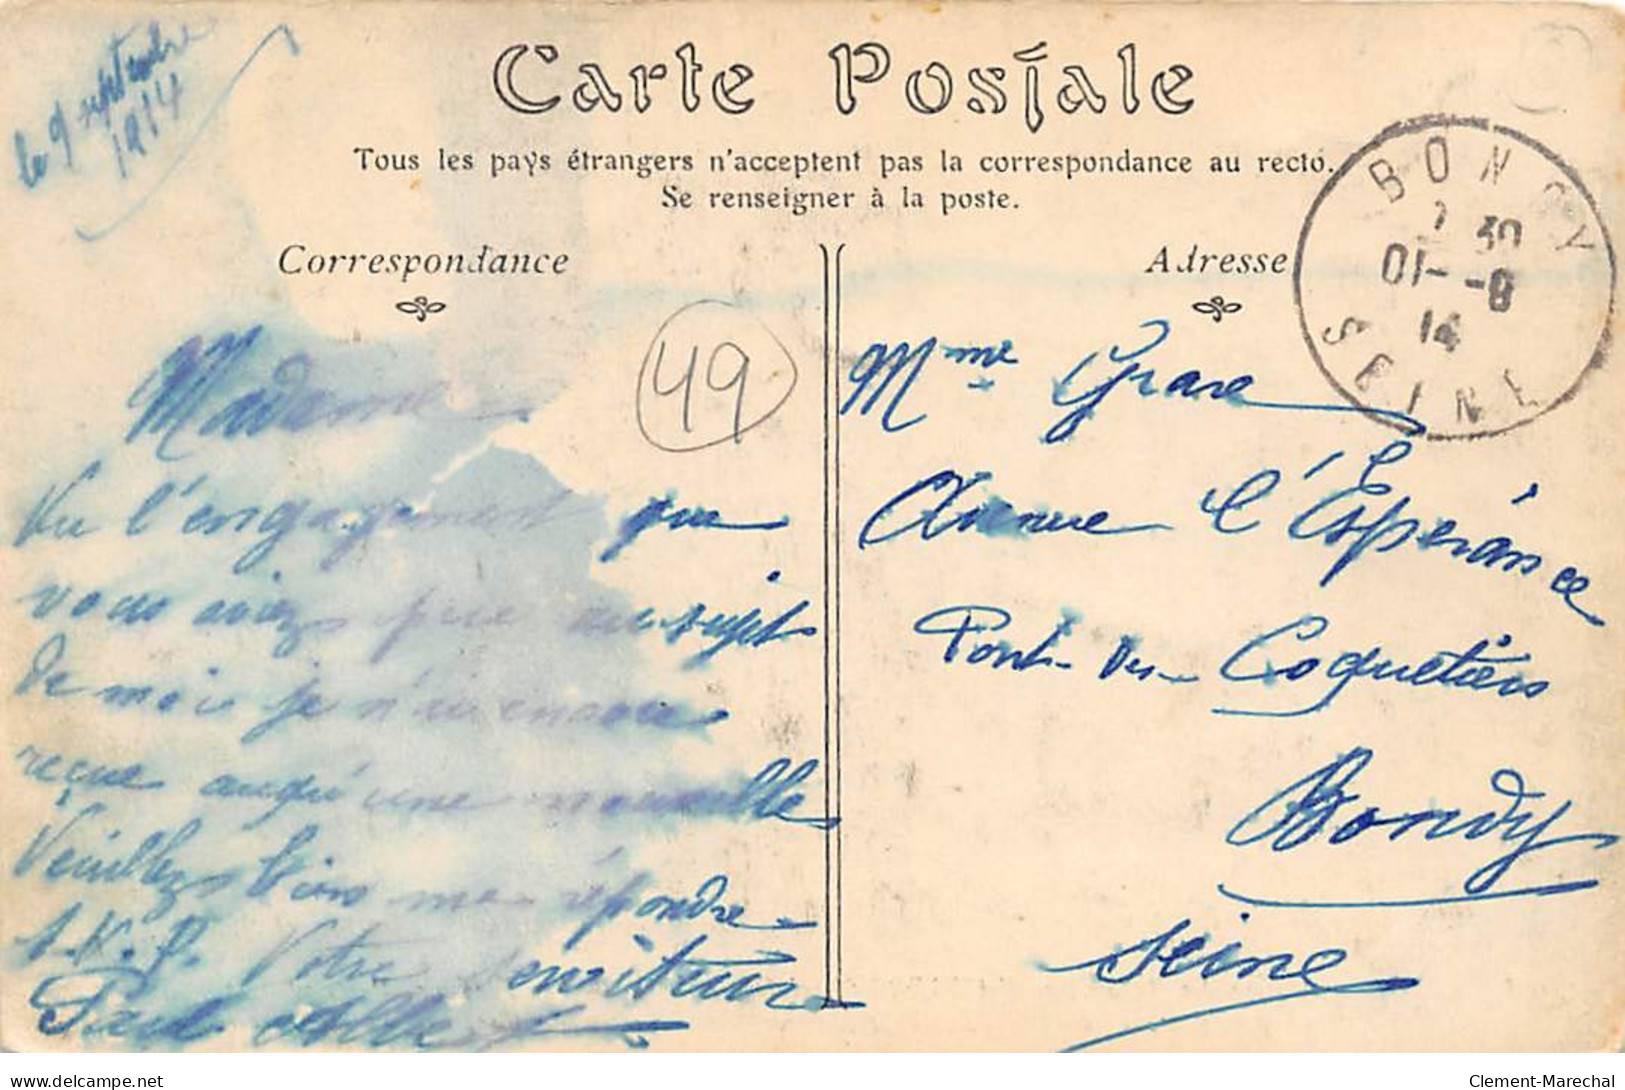 le 9 septembre
1914
Carte Postale
Tous les pays étrangers n'acceptent pas la correspondance au recto.
Se renseigner à la poste.
Correspondance
Adresse
BONDY
7 30
01--8
14
SEINE
49
Madame
Vu l'engagement que
vous aviez pris au sujet
de moi je n'ai encore
reçue auqu'une nouvelle
Veuillez bien me répondre
S.V.P. Votre serviteur
Paul
Mme Grave
Avenue l'Espérance
Pont-des-Coquetiers
Bondy
Seine
delcampe.net
Clement-Marechal